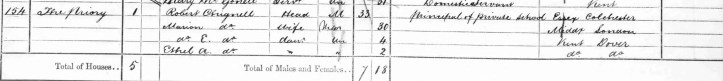 Servt Un 31 Domestic Servant Kent
154 The Priory 1 Robert Chignell Head M 33 Principal of private school Essex Colchester
Marion do Wife Mar 30 Middx London
do E. do daur Un 4 Kent Dover
Ethel A. do " " 2 do do
Total of Houses.. 5 Total of Males and Females.. 7 18